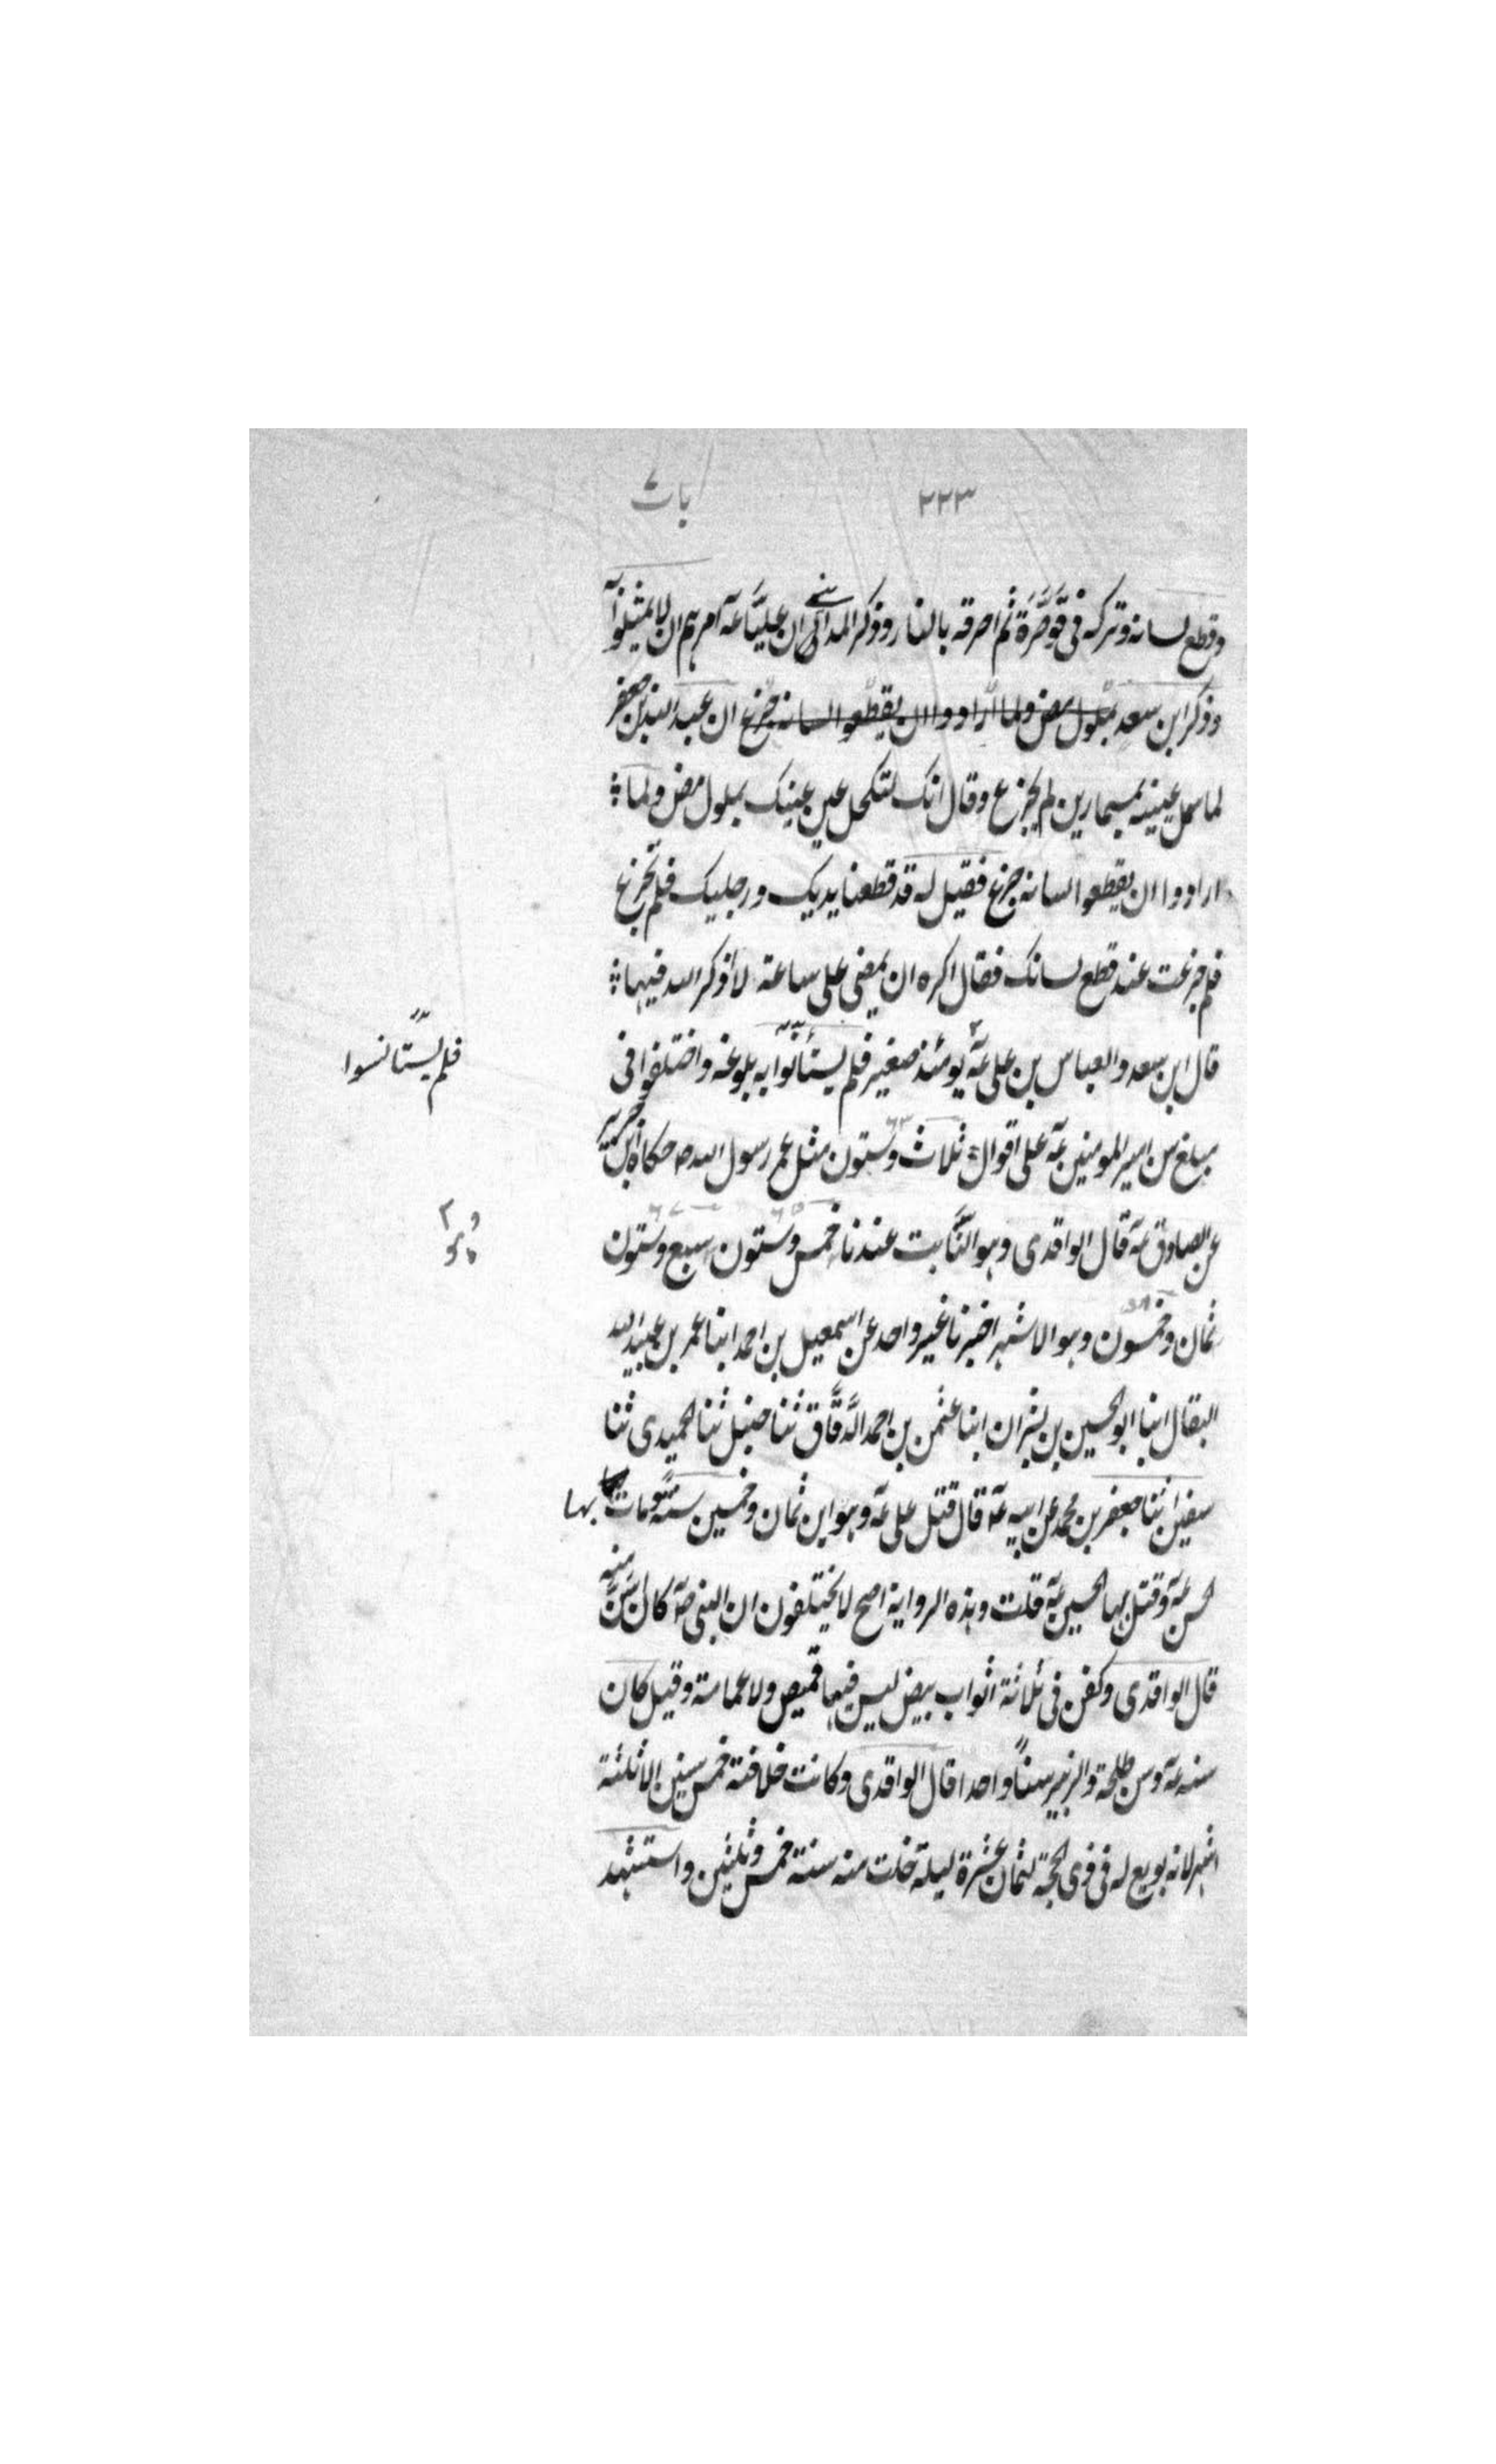 ٢٢٣ باب
وقطع لسانه وتركه فى قَوْصَرَّة ثم احرقه بالنار وذكر المدائنى ان عليًا عه امرهم ان لا يمثلوا
وذكر ابن سعد بملول مض ولما ارادوا ان يقطعوا لسانه جزع ان عبدالله بن جعفر
لما سمل عينيه بمسمارين لم يجزع وقال انك لتكحل عين عينك بملول مض ولما
ارادوا ان يقطعوا لسانه جزع فقيل له قد قطعنا يديك ورجليك فلم تجزع
فلم جزعت عند قطع لسانك فقال اكره ان يمضى على ساعة لا اذكر الله فيها
قال ابن سعد والعباس بن على عه يومئذ صغير فلم يستأنوا به بلوغه واختلفوا فى
فلم يستانسوا
مبلغ سن امير المومنين عه على اقوال ثلاث وستون مثل عمر رسول الله ص حكاه ابن جرير
٦٣
عن الصادق عه قال الواقدى وهو الثابت عندنا خمس وستون سبع وستون
٦٥ ٦٧
ثمان وخمسون وهو الاشهر اخبرنا غير واحد عن اسمعيل بن احمد ابنا عمر بن عبيدالله
٥٨
البقال ابنا ابو الحسين بن بشران ابنا عثمن بن احمد الدَّقَّاق ثنا حنبل ثنا الحميدى ثنا
سفين ثنا جعفر بن محمد عن ابيه عه قال قتل على عه وهو ابن ثمان وخمسين سنة ومات بها
لحسن عه وقتل بها الحسين عه قلت وهذه الرواية اصح لا يختلفون ان النبى صه كان اسن منه
قال الواقدى وكفن فى ثلاثة اثواب بيض ليس فيها قميص ولا عمامة وقيل كان
سنه عه وسن طلحة والزبير سنًا واحدا قال الواقدى وكانت خلافته خمس سنين الا ثلثة
اشهر لانه بويع له فى ذى الحجة لثمان عشرة ليلة خلت منه سنة خمس وثلثين واستشهد